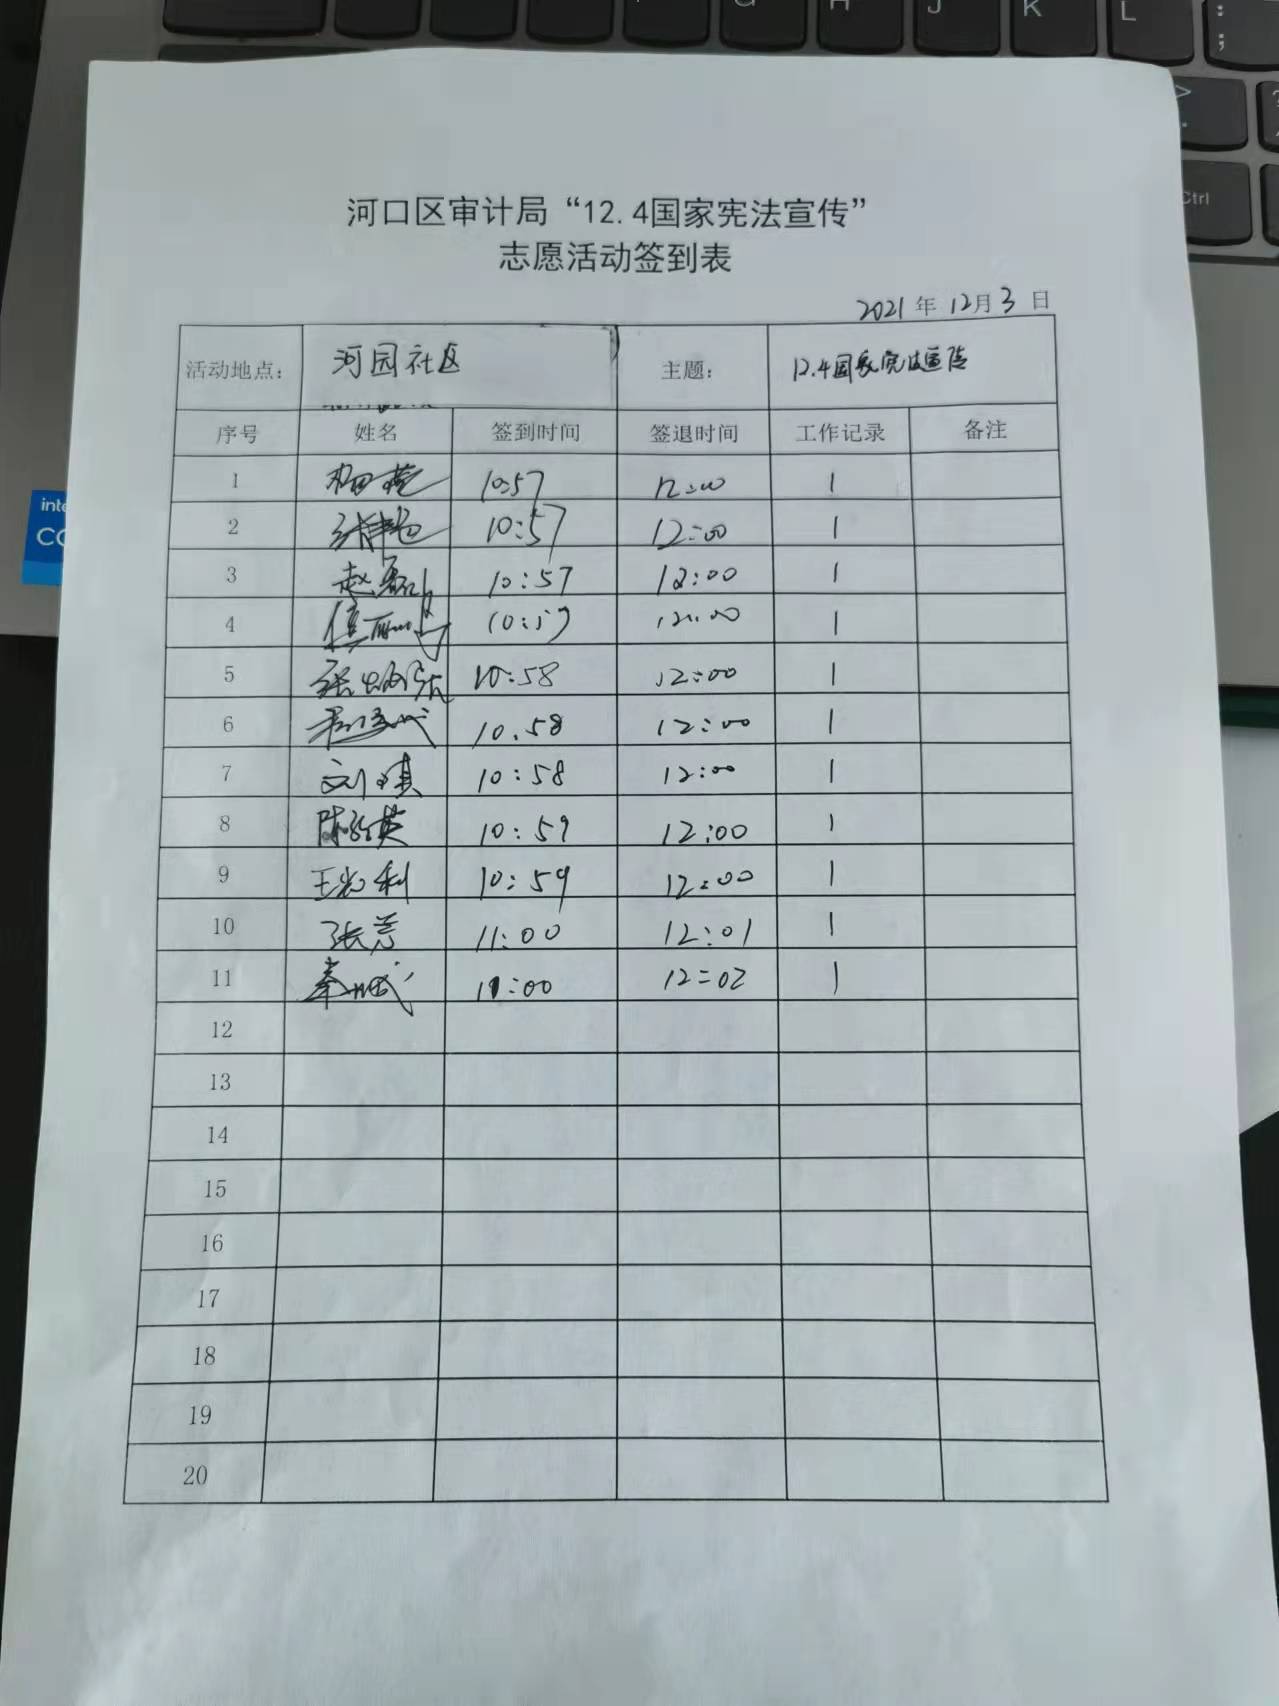 G H J K L : ;
> .
Ctrl
河口区审计局“12.4国家宪法宣传”
志愿活动签到表
2021年12月3日
活动地点： 河园社区 主题： 12.4国家宪法宣传
序号 姓名 签到时间 签退时间 工作记录 备注
1 10:57 12:00 1
2 10:57 12:00 1
3 赵磊 10:57 12:00 1
4 10:57 12:00 1
5 10:58 12:00 1
6 10.58 12:00 1
7 刘琪 10:58 12:00 1
8 10:59 12:00 1
9 10:59 12:00 1
10 11:00 12:01 1
11 11:00 12:02 1
12
13
14
15
16
17
18
19
20